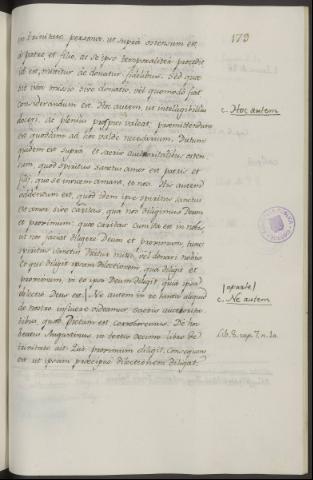 179
in trinitate persona, ut supra ostensum est
a patre, et filio, ac se ipso temporaliter procedit
id est, mittitur ac donatur fidelibus. Sed quae
sit haec missio sive donatio, vel quomodo fiat
considerandum est. Hoc autem, ut intelligibilius
doceri, ac plenius perspici valeat, praemittendum
est quoddam ad hoc valde necessarium. Dictum
quidem est supra, et sacris auctoritatibus osten-
sum, quod spiritus sanctus amor est patris et
filii, quo se invicem amant, et nos. His autem
addendum est, quod idem ipse spiritus sanctus
est amor, sive caritas, qua nos diligimus Deum
et proximum: quae caritas cum ita est in nobis,
ut nos faciat diligere Deum et proximum, tunc
spiritus sanctus dicitur mitti, vel donari nobis,
et qui diligit ipsam dilectionem qua diligit
proximum, in eo ipso Deum diligit, quia ipsa
dilectio Deus est.] Ne autem in re tanta aliquid
de nostro influere videamur, sacris auctorita-
tibus, quod dictum est corroboremus. De hoc
beatus Augustinus in octavo libro de
trinitate ait: Qui proximum diligit, consequens
est ut ipsam praecipue dilectionem diligat.
c. Hoc autem
[aparte]
c. Ne autem
Lib. 8. cap. 7. n. 10.